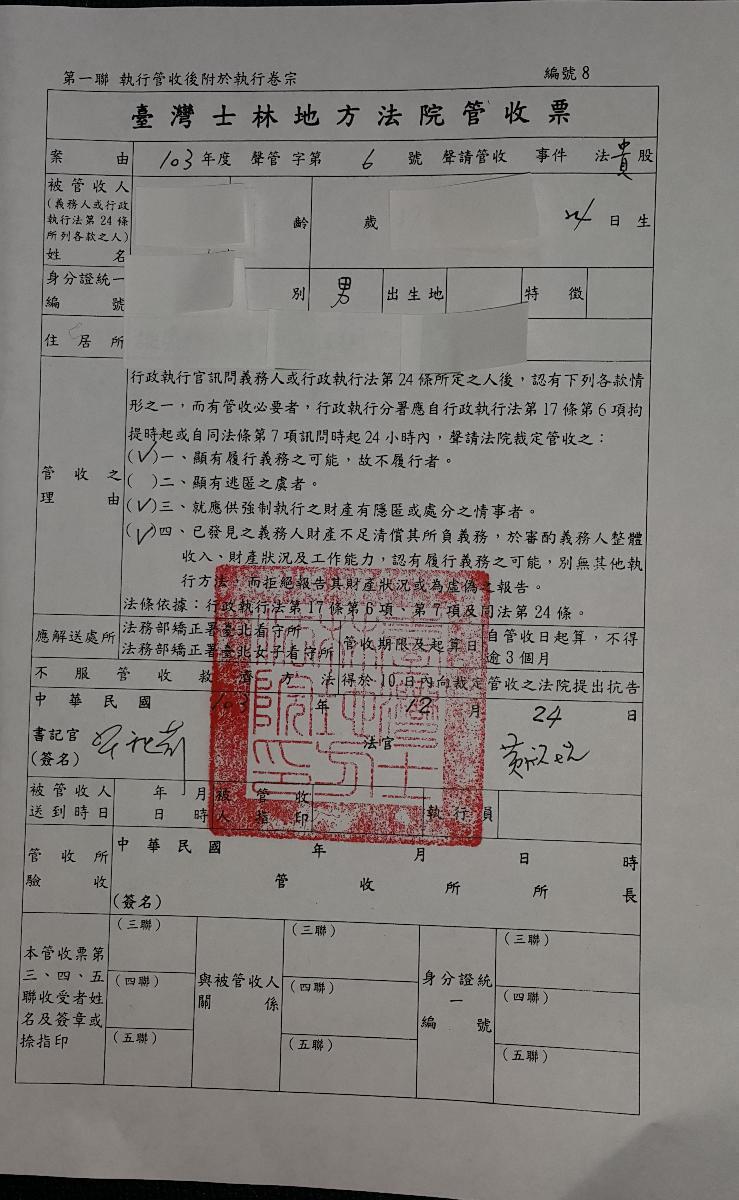 第一聯 執行管收後附於執行卷宗 編號8
臺灣士林地方法院管收票
案由 103年度 聲管字第 6 號 聲請管收 事件 法貴股
被管收人
(義務人或行政
執行法第24條
所列各款之人)
姓名
齡 歲 24日生
身分證統一
編號
別 男 出生地 特徵
住居所
管收之
理由
行政執行官訊問義務人或行政執行法第24條所定之人後，認有下列各款情
形之一，而有管收必要者，行政執行分署應自行政執行法第17條第6項拘
提時起或自同法條第7項訊問時起24小時內，聲請法院裁定管收之：
(✓)一、顯有履行義務之可能，故不履行者。
( )二、顯有逃匿之虞者。
(✓)三、就應供強制執行之財產有隱匿或處分之情事者。
(✓)四、已發見之義務人財產不足清償其所負義務，於審酌義務人整體
收入、財產狀況及工作能力，認有履行義務之可能，別無其他執
行方法，而拒絕報告其財產狀況或為虛偽之報告。
法條依據：行政執行法第17條第6項、第7項及同法第24條。
應解送處所
法務部矯正署臺北看守所
法務部矯正署臺北女子看守所
管收期限及起算日
自管收日起算，不得
逾3個月
不服管收救濟方法 得於10日內向裁定管收之法院提出抗告
中華民國 103 年 12 月 24 日
書記官
(簽名)
法官
被管收人
送到時日
年 月
日 時
被管收
人指印
執行員
管收所
驗收
中華民國 年 月 日 時
管收所所長
(簽名)
本管收票第
三、四、五
聯收受者姓
名及簽章或
捺指印
(三聯)
(四聯)
(五聯)
與被管收人
關係
(三聯)
(四聯)
(五聯)
身分證統
一
編號
(三聯)
(四聯)
(五聯)